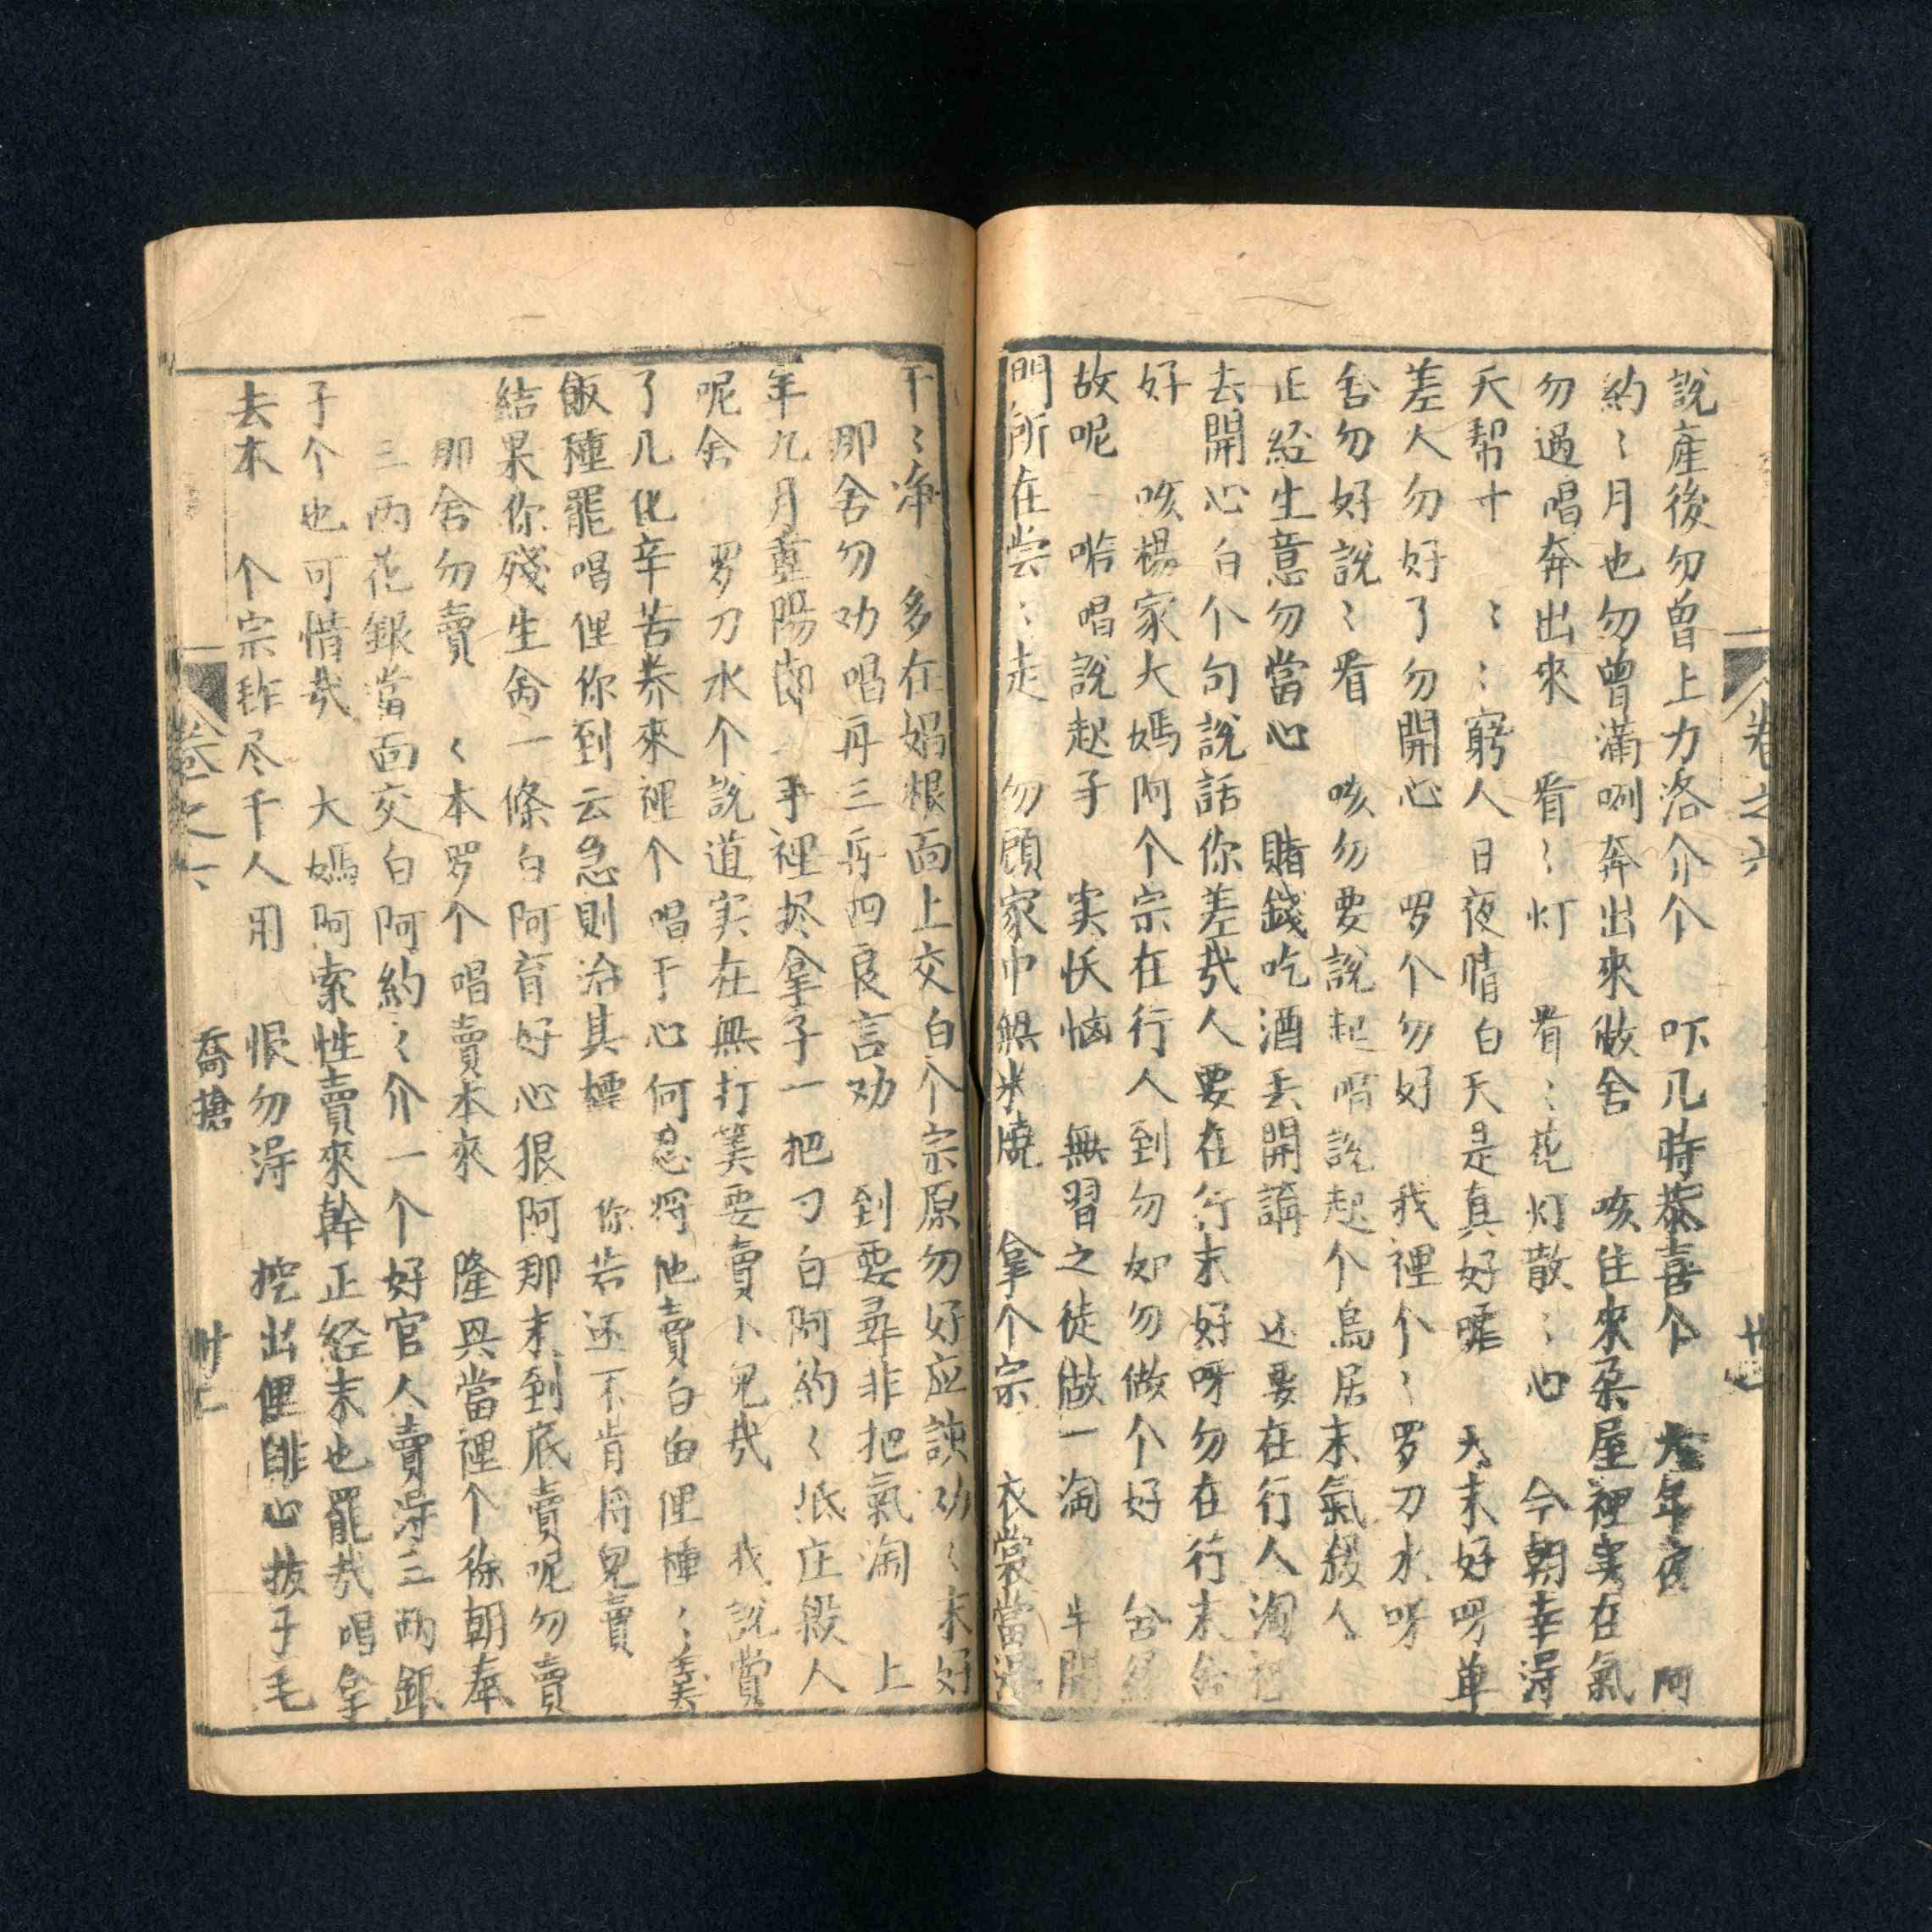 說產後勿曾上力洛介个 吓几時恭喜个 大年夜 阿
約〻月也勿曾滿咧奔出來做舍 咳住來朶屋裡実在氣
勿過唱奔出來 看〻灯 看〻花灯散〻心 今朝幸淂
天帮十 〻〻窮人日夜情白天是真好嘑 大末好呀单
差人勿好了勿開心 啰个勿好 我裡个〻罗刀水呀
舍勿好說〻看 咳勿要說起唷說起个烏居末氣殺人
正經生意勿當心 賭錢吃酒丢開講 还要在行人淘裡
去開心白个句說話你差哉人要在行末好呀勿在行末
好 咳楊家大媽阿个宗在行人到勿如勿做个好 舍
故呢 唶唱說起子 実怃恼 無習之徒做一淘 半開
門所在尝〻走 勿顧家中無米燒 拿个宗 衣裳當
干〻净 多在娼根面上交白个宗原勿好应該劝〻末好
那舍勿劝唱再三再四良言劝 到要尋非把氣淘 上
年九月重陽節 手裡抝拿子一把刀白阿約〻派庄殺人
呢舍 罗刀水个說道実在無打筭要賣卜兒哉 我說賞
了几化辛苦养來裡个唱于心何忍将他賣白由俚種〻義
飯種罷唱俚你到云急則治其標 你若还不肯将兒賣
結果你殘生舍一條白阿育好心狠阿那末到底賣呢勿賣
那舍勿賣 〻本罗个唱賣本來 隆興當裡个徐朝奉
三兩花銀當面交白阿約〻介一个好官人賣淂三兩銀
子个也可惜哉 大媽阿索性賣來幹正经末也罷哉唱拿
去本 个宗鈼尽千人用 恨勿淂 挖出俚啡心拔子毛
卷之六
卷之
喬搶